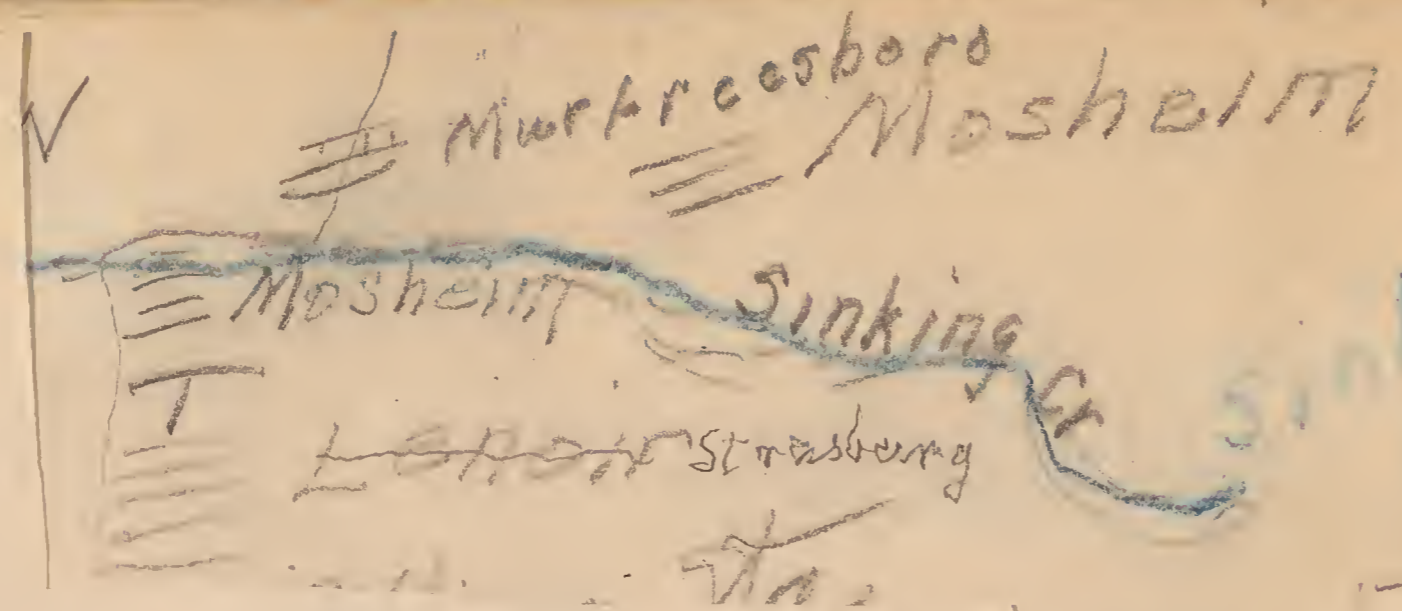 Murfreesboro
Mosheim
Mosheim
Sinking Cr
Lenoir Strasburg